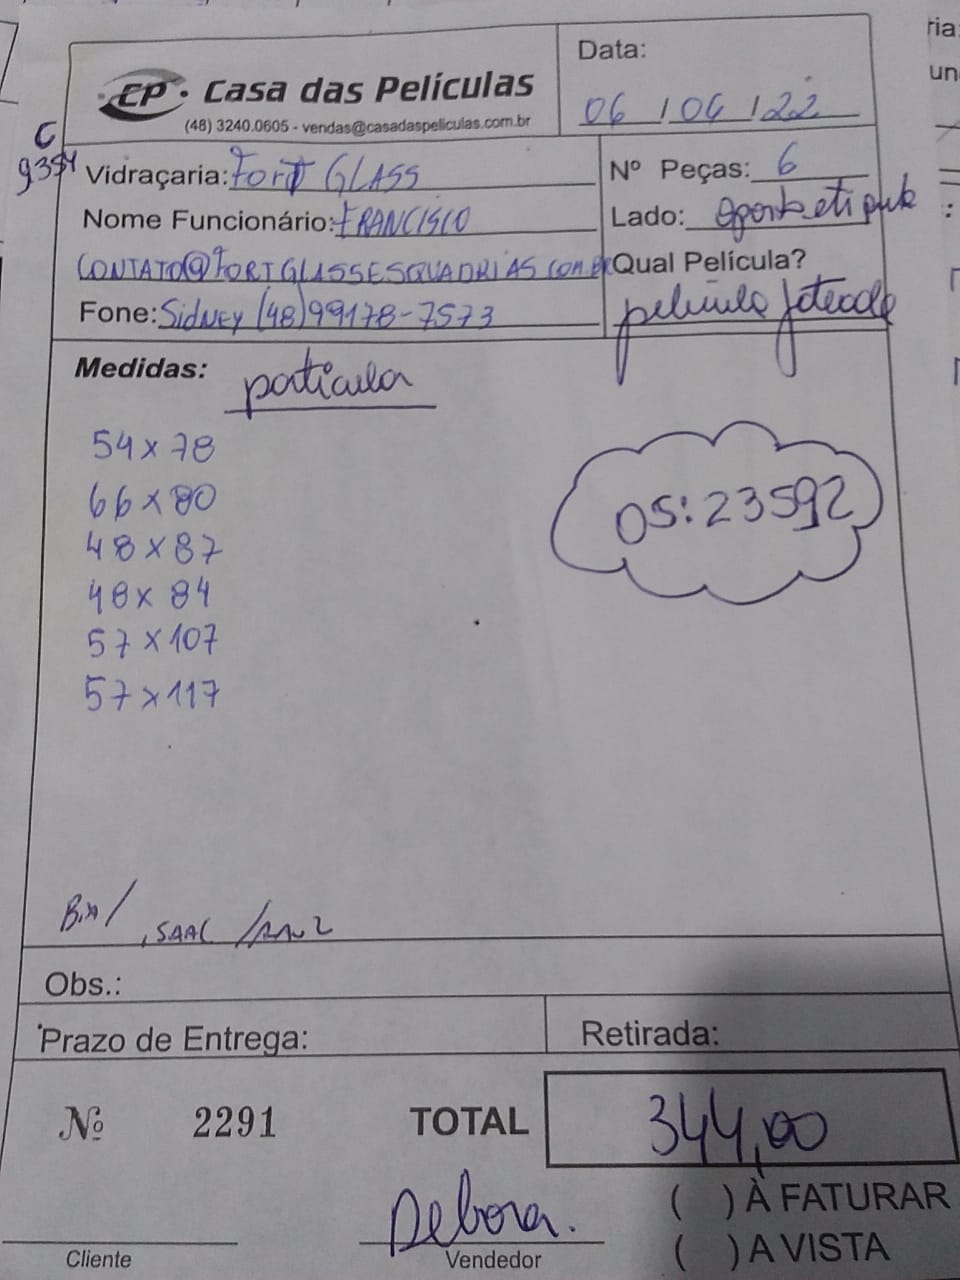 CP. Casa das Películas
(48) 3240.0605 - vendas@casadaspeliculas.com.br
Data:
06 / 04 / 22
C
9354
Vidraçaria: Fort GLASS
Nº Peças: 6
Nome Funcionário: FRANCISCO
Lado:
CONTATO@FORTGLASSESQUADRIAS.COM.BR
Qual Película?
Fone: Sidney (48)99178-7573
película jateada
Medidas: particular
54 x 78
66 x 80
48 x 87
48 x 84
57 x 107
57 x 117
OS: 23592
Obs.:
Prazo de Entrega:
Retirada:
Nº 2291
TOTAL 344,00
Debora.
( ) À FATURAR
Cliente
Vendedor
( ) A VISTA
ria:
un
: